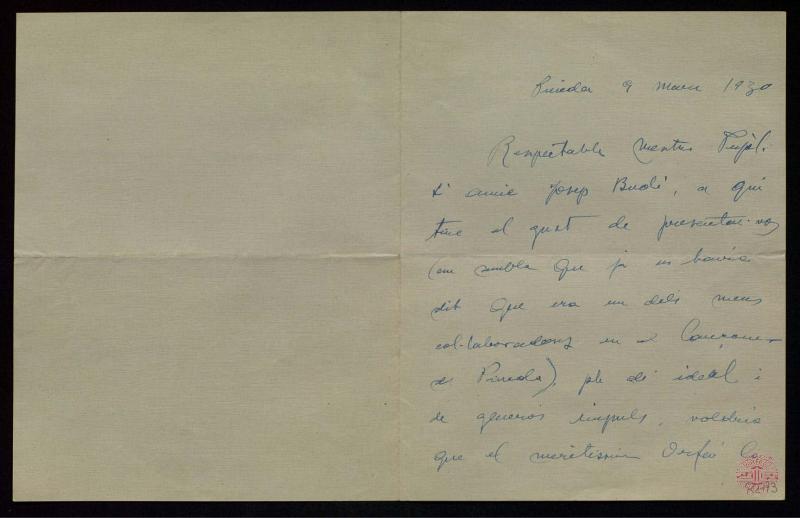 Pineda 9 març 1930
Respectable mestre Pujol:
L'amic Josep Budí, a qui
tinc el gust de presentar-vos
(em sembla que ja us havia
dit que era un dels meus
col·laboradors en el Cançoner
de Pineda), ple de ideal i
de generós impuls, voldria
que el meritíssim Orfeó Ca